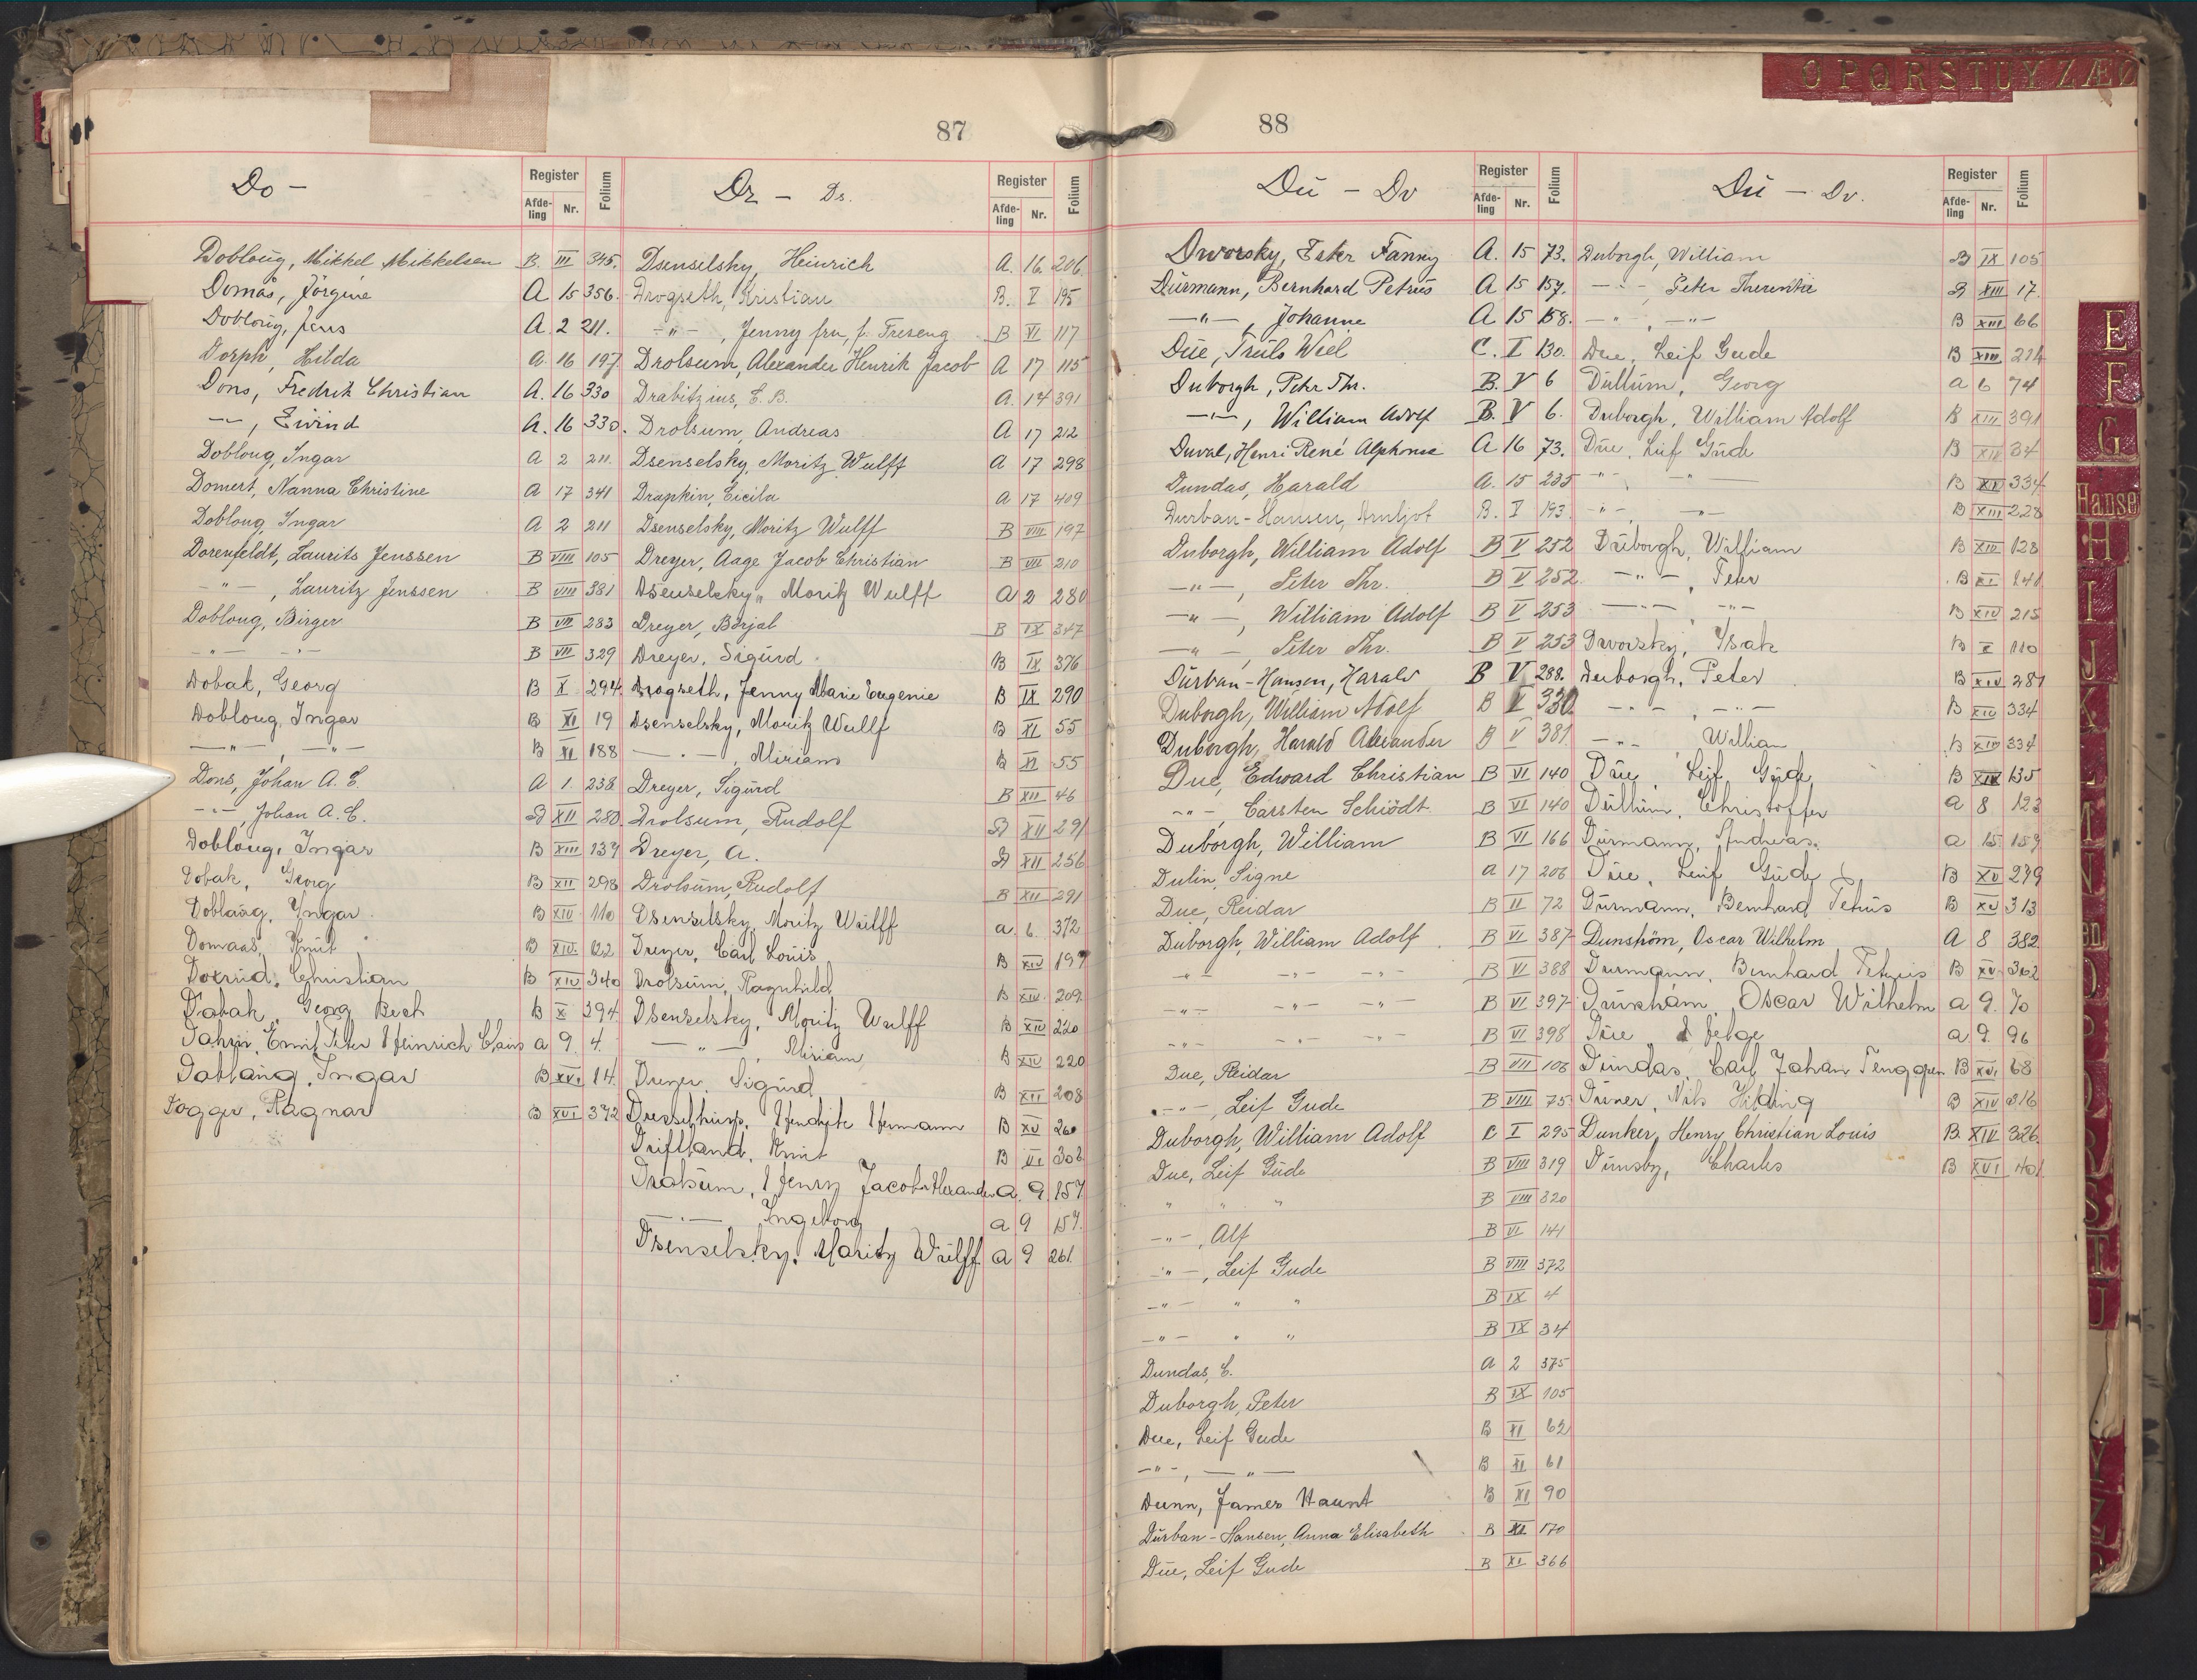 87
Do –
Register
Afde-ling Nr. Folium
Dobloug, Mikkel Mikkelsen B. III 345.
Domås, Jörgine A 15 356.
Dobloug, Jens A. 2 211.
Dorph, Hilda A. 16 197
Dons, Fredrik Christian A. 16 330
–"–, Eivind A. 16 330.
Dobloug, Ingar A 2 211.
Domert, Nanna Christine A 17 341
Dobloug, Ingar A 2 211
Dorenfeldt, Laurits Jenssen B VIII 105
–"–, Lauritz Jenssen B VIII 381
Dobloug, Birger B VII 283
–"– –"– B VII 329
Dobak, Georg B X 294
Dobloug, Ingar B XI 19
–"–, –"– B XI 188
Dons, Johan A. C. A 1 238
–"–, Johan A. C. B XII 280
Dobloug, Ingar B XIII 137
Dobak, Georg B XII 298
Dobloug, Ingar B XIV 110
Domaas, Knut B XIV 122
Doxrud, Christian B XIV 340
Dobak, Georg Bech B X 294
Emil Peter Heinrich a 9. 4.
Dobloug, Ingar B XVI 14
Dogger, Ragnar B XVI 372
Dr – Ds.
Register
Afde-ling Nr. Folium
Dsenselsky, Heinrich A. 16. 206.
Drogseth, Kristian B. V 195
–"–, Jenny fru, f. Treseng B VI 117
Drolsum, Alexander Henrik Jacob A 17 115
Drabitzius, C. B. A. 14 391
Drolsum, Andreas A 17 212
Dsenselsky, Moritz Wulff A 17 298
Drapkin, Cicila A 17 409
Dsenselsky, Moritz Wulff B VIII 197
Dreyer, Aage Jacob Christian B VII 210
Dsenselsky, Moritz Wulff A 2 280
Dreyer, Borjal B IX 347
Dreyer, Sigurd B IX 376
Drogseth, Jenny Marie Eugenie B IX 290
Dsenselsky, Moritz Wulff B XI 55
–"–, Miriam B XI 55
Dreyer, Sigurd B XII 46
Drolsum, Rudolf B XII 291
Dreyer, A. B XII 256
Drolsum, Rudolf B XII 291
Dsenselsky, Moritz Wulff a. 6. 372
Dreyer, Carl Louis B XIV 197
Drolsum, Ragnhild B XIV 209
Dsenselsky, Moritz Wulff B XIV 220
–"–, Miriam B XIV 220
Dreyer, Sigurd B XII 208
Hermann B XV 260
Driftland, Knut B VI 302
Drolsum, Henry Jacob Alexander a. 9. 157
–"– Ingeborg a 9 157.
Dsenselsky, Moritz Wulff a 9 261.
88
O P Q R S T U Y Z Æ Ø
Du – Dv
Register
Afde-ling Nr. Folium
Dworsky, Ester Fanny A. 15 73.
Dürmann, Bernhard Petrus A 15 157.
–"–, Johanne A 15 158.
Due, Truls Wiel C. I 130.
Duborgh, Petr Thr. B. V 6
–"–, William Adolf B. V 6.
Duval, Henri René Alphonse A 16 73.
Dundas, Harald A. 15 235
Durban-Hansen, Arnljot B. V 193.
Duborgh, William Adolf B V 252
–"–, Peter Thr. B V 252.
–"–, William Adolf B V 253
–"–, Peter Thr. B V 253
Durban-Hansen, Harald B V 288.
Duborgh, William Adolf B V 330
Duborgh, Harald Alexander B V 381
Due, Edward Christian B VI 140
–"–, Carsten Schiödt B VI 140
Duborgh, William B VI 166
Dulin, Signe A 17 206
Due, Reidar B II 72
Duborgh, William Adolf B VI 387
–"– –"– –"– B VI 388
–"– –"– –"– B VI 397
–"– –"– –"– B VI 398
Due, Reidar B VII 106
–"–, Leif Gude B VIII 75
Duborgh, William Adolf C I 295
Due, Leif Gude B VIII 319
" " " B VIII 320
–"–, Alf B VI 141
–"–, Leif Gude B VIII 372
–"– " " B IX 4
–"– " " B IX 34
Dundas, C. A 2 375
Duborgh, Peter B IX 105
Due, Leif Gude B XI 62
–"–, –"– B XI 61
Dunn, James Haunt B XI 90
Durban-Hansen, Anna Elisabeth B XI 170
Due, Leif Gude B XI 366
Du – Dv.
Register
Afde-ling Nr. Folium
Duborgh, William B IX 105
–"–, Peter B XIII 17.
–"–, –"– B XIII 66
Due, Leif Gude B XIII 214
Dullum, Georg a 6 74
Duborgh, William Adolf B XIII 391
Due, Leif Gude B XIV 34
–"– –"– B XIV 334
–"–, –"– B XIII 228
Duborgh, William B XIV 128
–"–, Peter B XI 241
–"– –"– B XIV 215
Dworsky, Isak B X 110
Duborgh, Peter B XIV 281
–"–, –"– B XIV 334
–"–, William B XIV 334
Due, Leif Gude B XIV 135
Dullum, Christoffer a 8 123
Dürmann, Andreas. a 15. 159
Due, Leif Gude B XV 239
Dürmann, Bernhard Petrus B XV 313
Dunström, Oscar Wilhelm A 8 382
Durmann, Bernhard Petrus B XV 362
Oscar Wilhelm a 9. 70
Due Helge a. 9. 96
Dundas, Carl Johan Tenggren B XVI 68
Nils Hilding B XIV 316
Dunker, Henry Christian Louis B. XIV 326
Charles B XVI 401
E
F
G
Hanse
H
I
J
K
L
M
N
en
O
P
Q
R
S
T
U
Y
Z